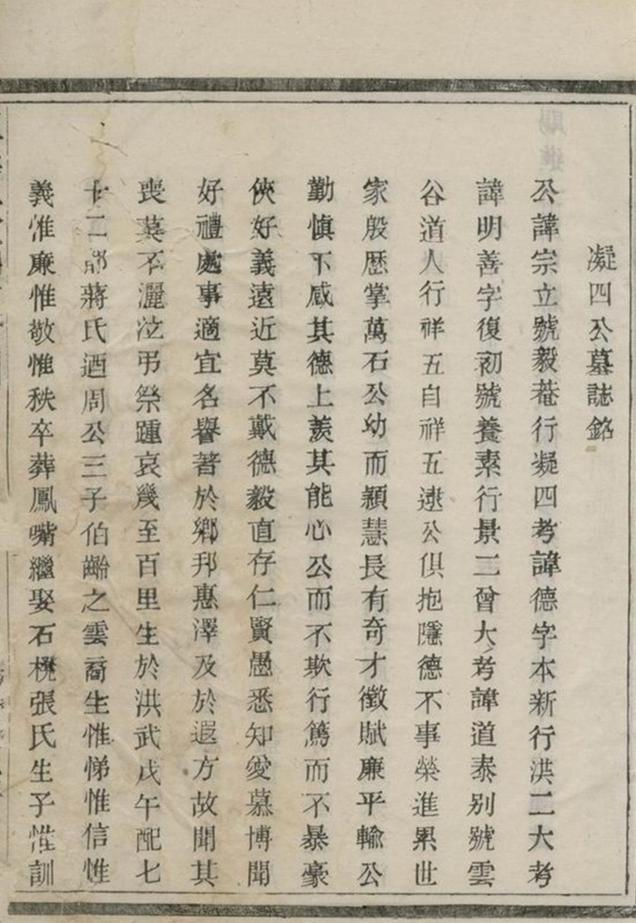 凝四公墓誌銘
公諱宗立號毅菴行凝四考諱德字本新行洪二大考
諱明善字復初號養素行景二曾大考諱道泰別號雲
谷道人行祥五自祥五逮公俱抱隱德不事榮進累世
家殷歷掌萬石公幼而穎慧長有奇才徵賦廉平輸公
勤慎下感其德上羨其能心公而不欺行篤而不暴豪
俠好義遠近莫不戴德毅直存仁賢愚悉知愛慕博聞
好禮處事適宜名譽著於鄉邦惠澤及於遐方故聞其
喪莫不灑泣弔祭踵哀幾至百里生於洪武戊午配七
十二都蔣氏迺周公三子伯齡之雲裔生惟悌惟信惟
義惟廉惟敬惟秩卒葬鳳嘴繼娶石櫈張氏生子惟訓